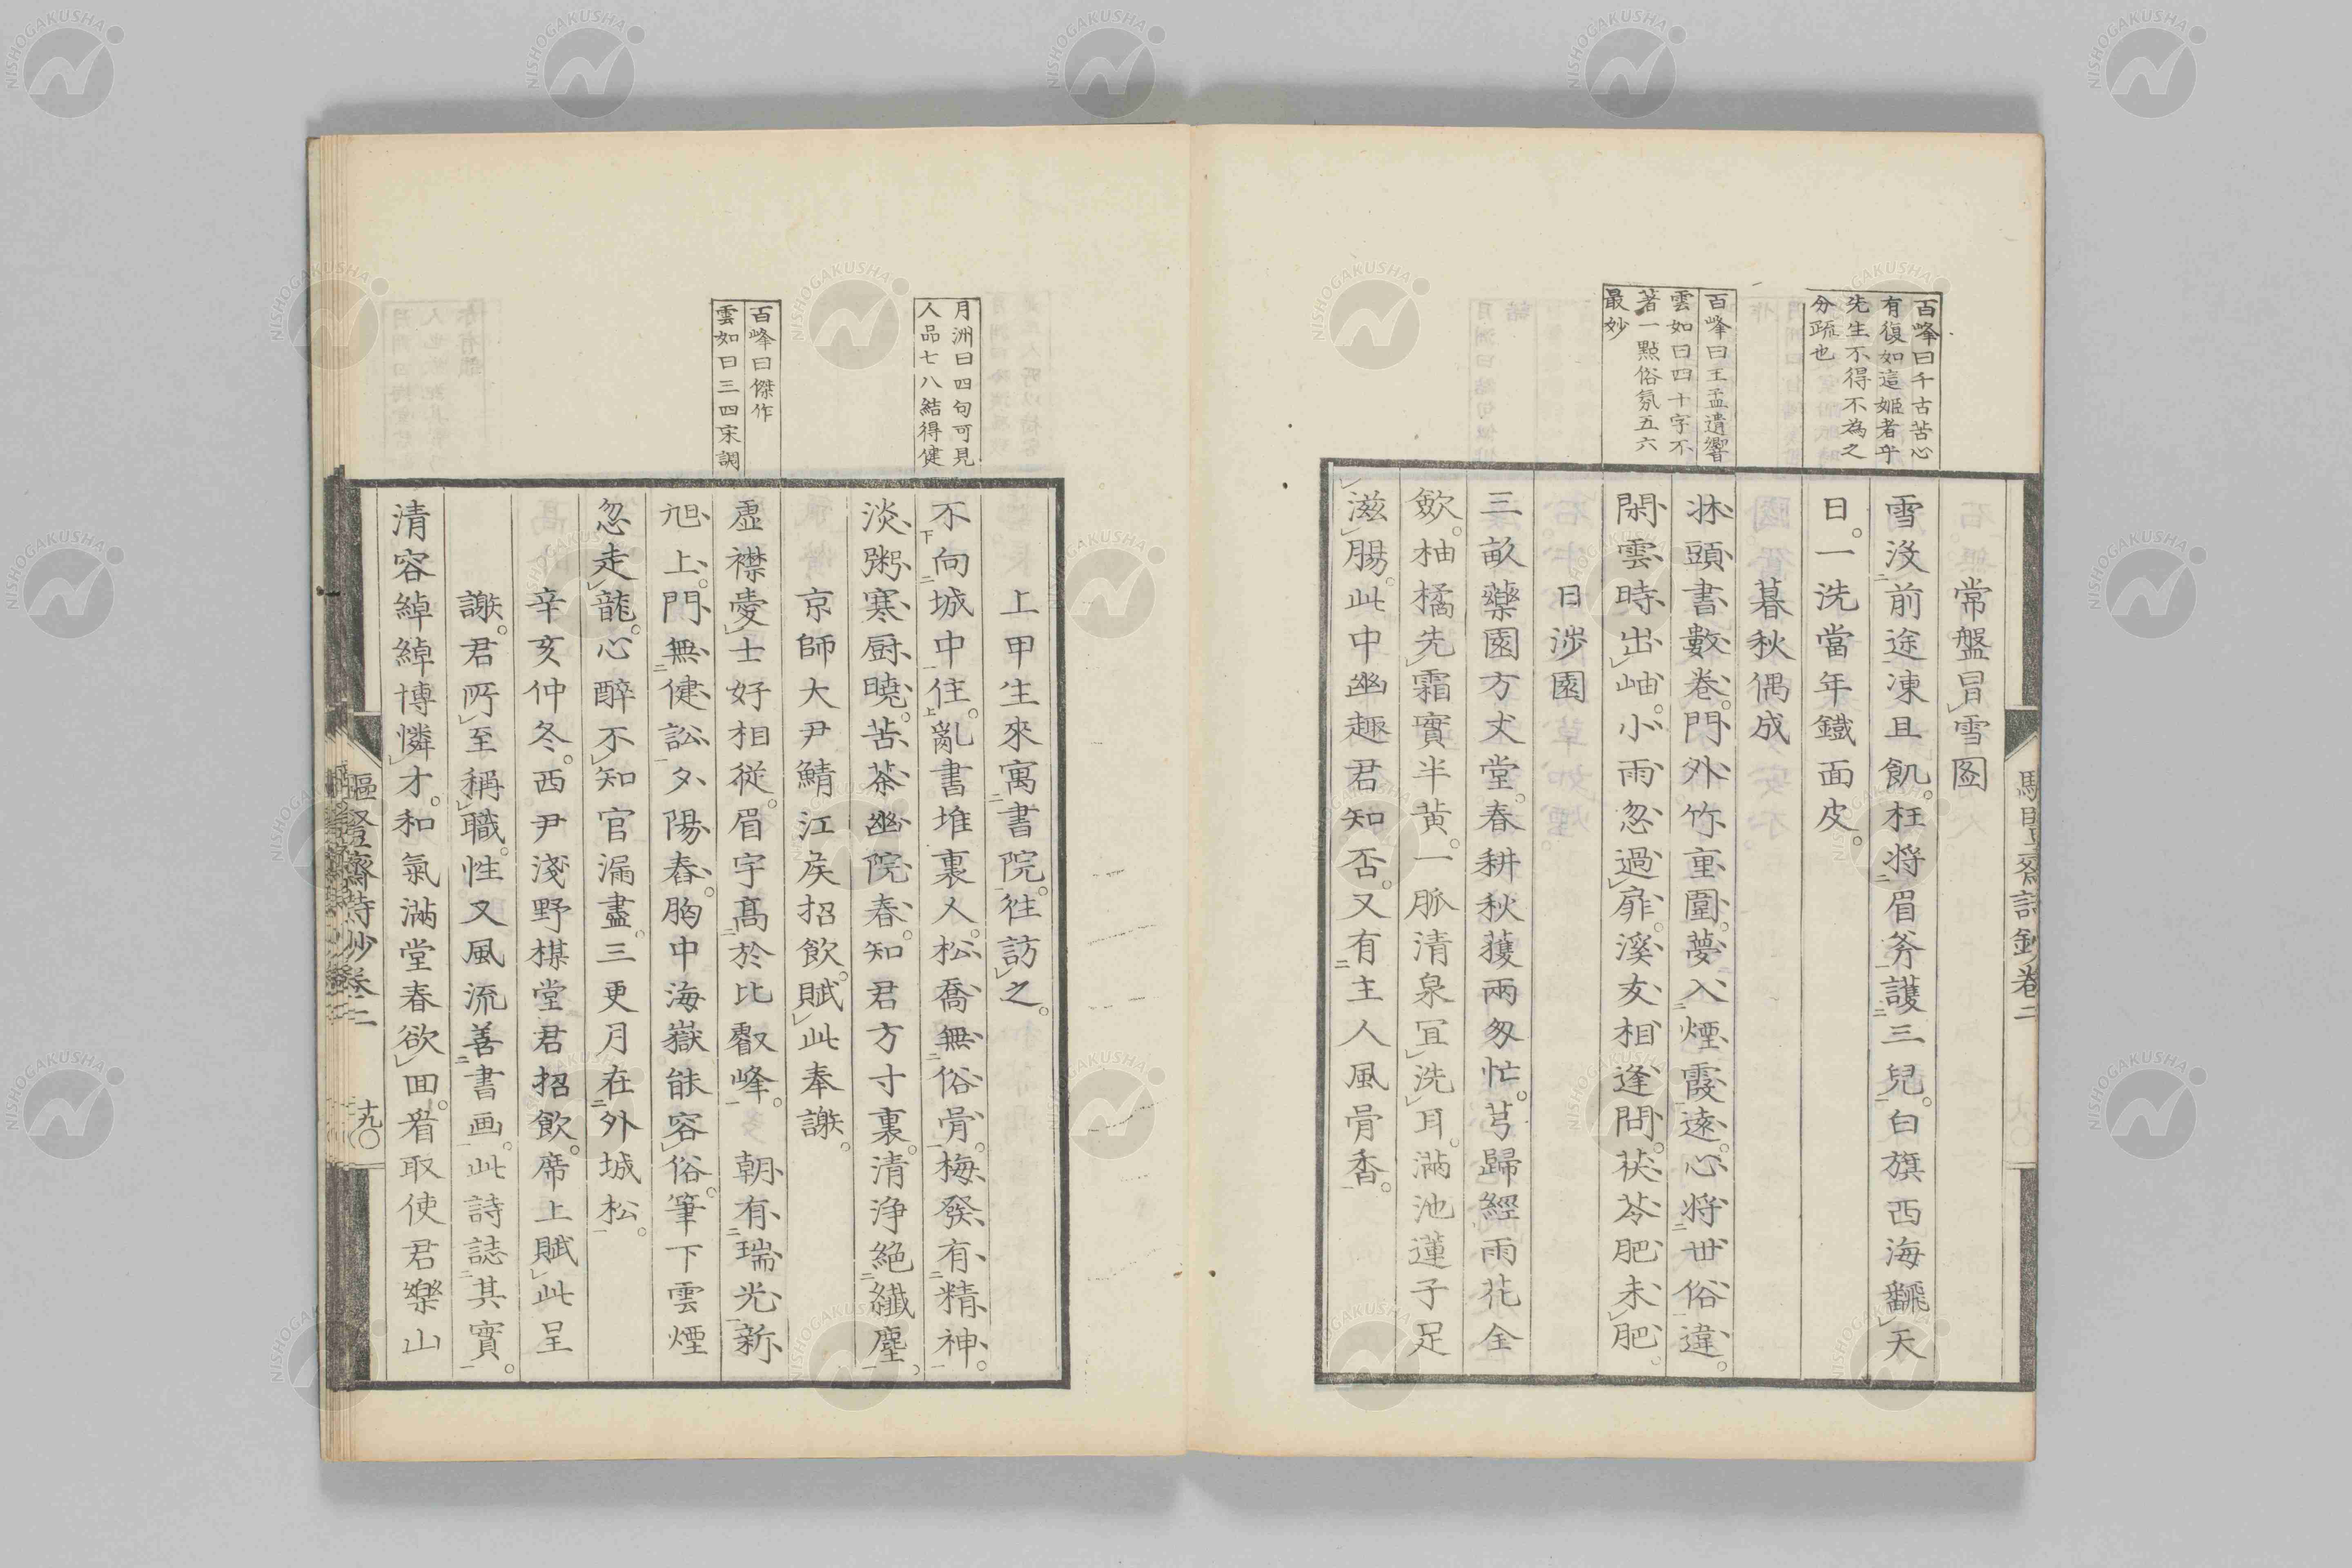 百峰曰千古苦心
有復如這姬者乎
先生不得不為之
分疏也
百峰曰王孟遺響
雲如曰四十字不
著一點俗氛五六
最妙
常盤冒雪図
雪沒前途凍且飢枉將眉斧護三兒白旗西海飜天
日一洗當年鐵面皮
暮秋偶成
牀頭書數卷門外竹重圍夢入煙霞遠心將世俗違
閑雲時出岫小雨忽過扉溪女相逢問茯苓肥未肥
日涉園
三畝藥園方丈堂春耕秋穫兩匆忙芎歸經雨花全
斂柚橘先霜實半黃一脈清泉宜洗耳滿池蓮子足
滋腸此中幽趣君知否又有主人風骨香
月洲曰四句可見
人品七八結得健
百峰曰傑作
雲如曰三四宋調
上甲生來寓書院往訪之
不向城中住亂書堆裏人松喬無俗骨梅發有精神
淡粥寒厨曉苦茶幽院春知君方寸裏清淨絕纖塵
京師大尹鯖江侯招飲賦此奉謝
虛襟愛士好相從眉宇高於比叡峰朝有瑞光新
旭上門無健訟夕陽舂胸中海嶽能容俗筆下雲煙
忽走龍心醉不知官漏盡三更月在外城松
辛亥仲冬西尹淺野楳堂君招飲席上賦此呈
謝君所至稱職性又風流善書画此詩誌其實
清容綽綽博憐才和氣滿堂春欲回看取使君樂山
齋詩鈔卷二
十九
NISHOGAKUSHA